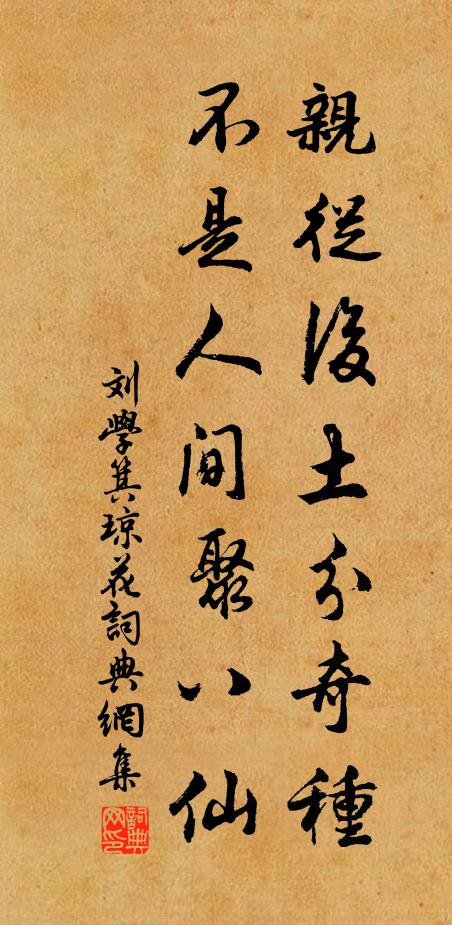 親從後土分奇種
不是人间聚八仙
刘學箕琼花詞典網集
詞典網印